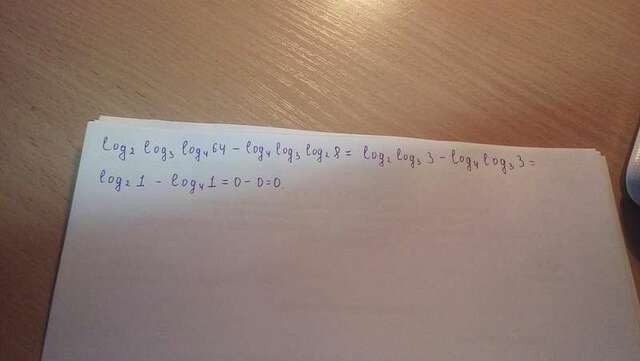 log₂ log₃ log₄ 64 − log₄ log₃ log₂ 8 = log₂ log₃ 3 − log₄ log₃ 3 =
log₂ 1 − log₄ 1 = 0 − 0 = 0.